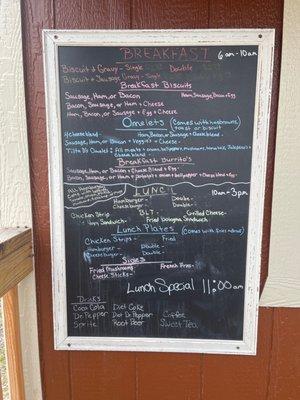 BREAKFAST 6am-10am
Biscuit & Gravy - Single Double
Biscuit & Sausage Gravy - Single
Breakfast Biscuits
Sausage, Ham, or Bacon Ham, Sausage, Bacon + Egg
Bacon, Sausage, or Ham + Cheese
Ham, Bacon, or Sausage + Egg + Cheese
Omelets (Comes with hashbrowns, toast or biscuit)
4 cheese blend - Ham, Bacon, or Sausage + Cheese blend -
Sausage, Ham, or Bacon + Veggies + Cheese -
meats + onion, bellpepper, mushrooms, tomatoes, Jalapeños +
Cheese blend
Breakfast Burrito's
Sausage, Ham, or Bacon + Cheese Blend + Egg -
Bacon, Sausage, or Ham + onion + bellpepper + Cheese blend + Egg
LUNCH 10am-3pm
Hamburger - Double -
Cheeseburger - Double -
Chicken Strip BLT - Grilled Cheese -
Ham Sandwich - Fried bologna Sandwich -
Lunch Plates (Comes with fries + drink)
Chicken Strips - Fried
Hamburger - Double -
Cheeseburger - Double -
Sides
Fried Mushrooms French Fries -
Cheese Sticks -
Lunch Special 11:00am
Drinks
Coca Cola Diet Coke
Dr. Pepper Diet Dr. Pepper Coffee
Sprite Root Beer Sweet Tea